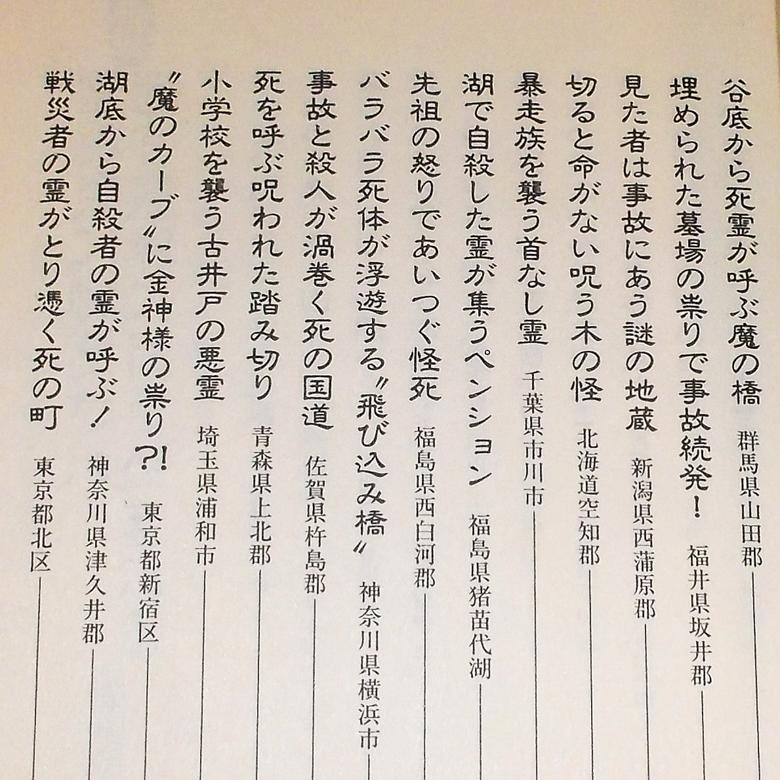 谷底から死霊が呼ぶ魔の橋 群馬県山田郡
埋められた墓場の祟りで事故続発! 福井県坂井郡
見た者は事故にあう謎の地蔵 新潟県西蒲原郡
切ると命がない呪う木の怪 北海道空知郡
暴走族を襲う首なし霊 千葉県市川市
湖で自殺した霊が集うペンション 福島県猪苗代湖
先祖の怒りであいつぐ怪死 福島県西白河郡
バラバラ死体が浮遊する〝飛び込み橋〟 神奈川県横浜市
事故と殺人が渦巻く死の国道 佐賀県杵島郡
死を呼ぶ呪われた踏み切り 青森県上北郡
小学校を襲う古井戸の悪霊 埼玉県浦和市
〝魔のカーブ〟に金神様の祟り?! 東京都新宿区
湖底から自殺者の霊が呼ぶ! 神奈川県津久井郡
戦災者の霊がとり憑く死の町 東京都北区